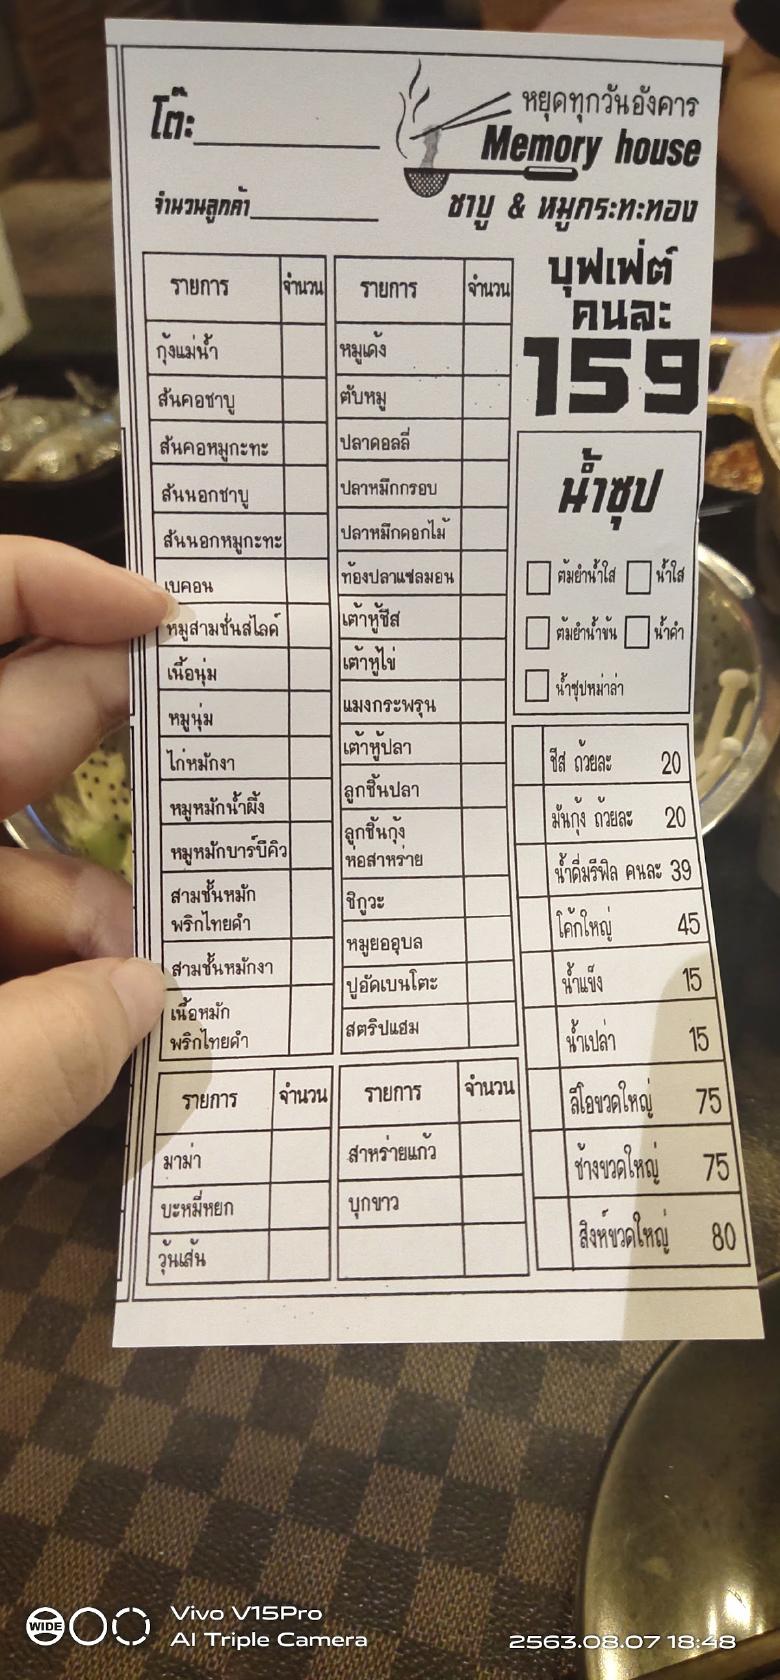 โต๊ะ
จำนวนลูกค้า
หยุดทุกวันอังคาร
Memory house
ชาบู & หมูกระทะทอง
บุฟเฟ่ต์
คนละ
159
รายการ จำนวน
กุ้งแม่น้ำ
สันคอชาบู
สันคอหมูกะทะ
สันนอกชาบู
สันนอกหมูกะทะ
เบคอน
หมูสามชั้นสไลด์
เนื้อนุ่ม
หมูนุ่ม
ไก่หมักงา
หมูหมักน้ำผึ้ง
หมูหมักบาร์บีคิว
สามชั้นหมัก
พริกไทยดำ
สามชั้นหมักงา
เนื้อหมัก
พริกไทยดำ
รายการ จำนวน
หมูเด้ง
ตับหมู
ปลาดอลลี่
ปลาหมึกกรอบ
ปลาหมึกดอกไม้
ท้องปลาแซลมอน
เต้าหู้ชีส
เต้าหู้ไข่
แมงกระพรุน
เต้าหู้ปลา
ลูกชิ้นปลา
ลูกชิ้นกุ้ง
หอสาหร่าย
ชิกูวะ
หมูยออุบล
ปูอัดเบนโตะ
สตริปแฮม
น้ำซุป
ต้มยำน้ำใส น้ำใส
ต้มยำน้ำข้น น้ำดำ
น้ำซุปหม่าล่า
ชีส ถ้วยละ 20
มันกุ้ง ถ้วยละ 20
น้ำดื่มรีฟิล คนละ 39
โค้กใหญ่ 45
น้ำแข็ง 15
น้ำเปล่า 15
ลีโอขวดใหญ่ 75
ช้างขวดใหญ่ 75
สิงห์ขวดใหญ่ 80
รายการ จำนวน
มาม่า
บะหมี่หยก
วุ้นเส้น
รายการ จำนวน
สาหร่ายแก้ว
บุกขาว
WIDE
Vivo V15Pro
AI Triple Camera
2563.08.07 18:48